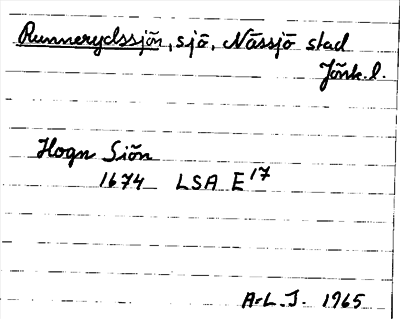 Runnerydssjön, sjö, Nässjö stad
Jönk. l.
Hogn Siön
1674 LSA E 17
A-L. J. 1965